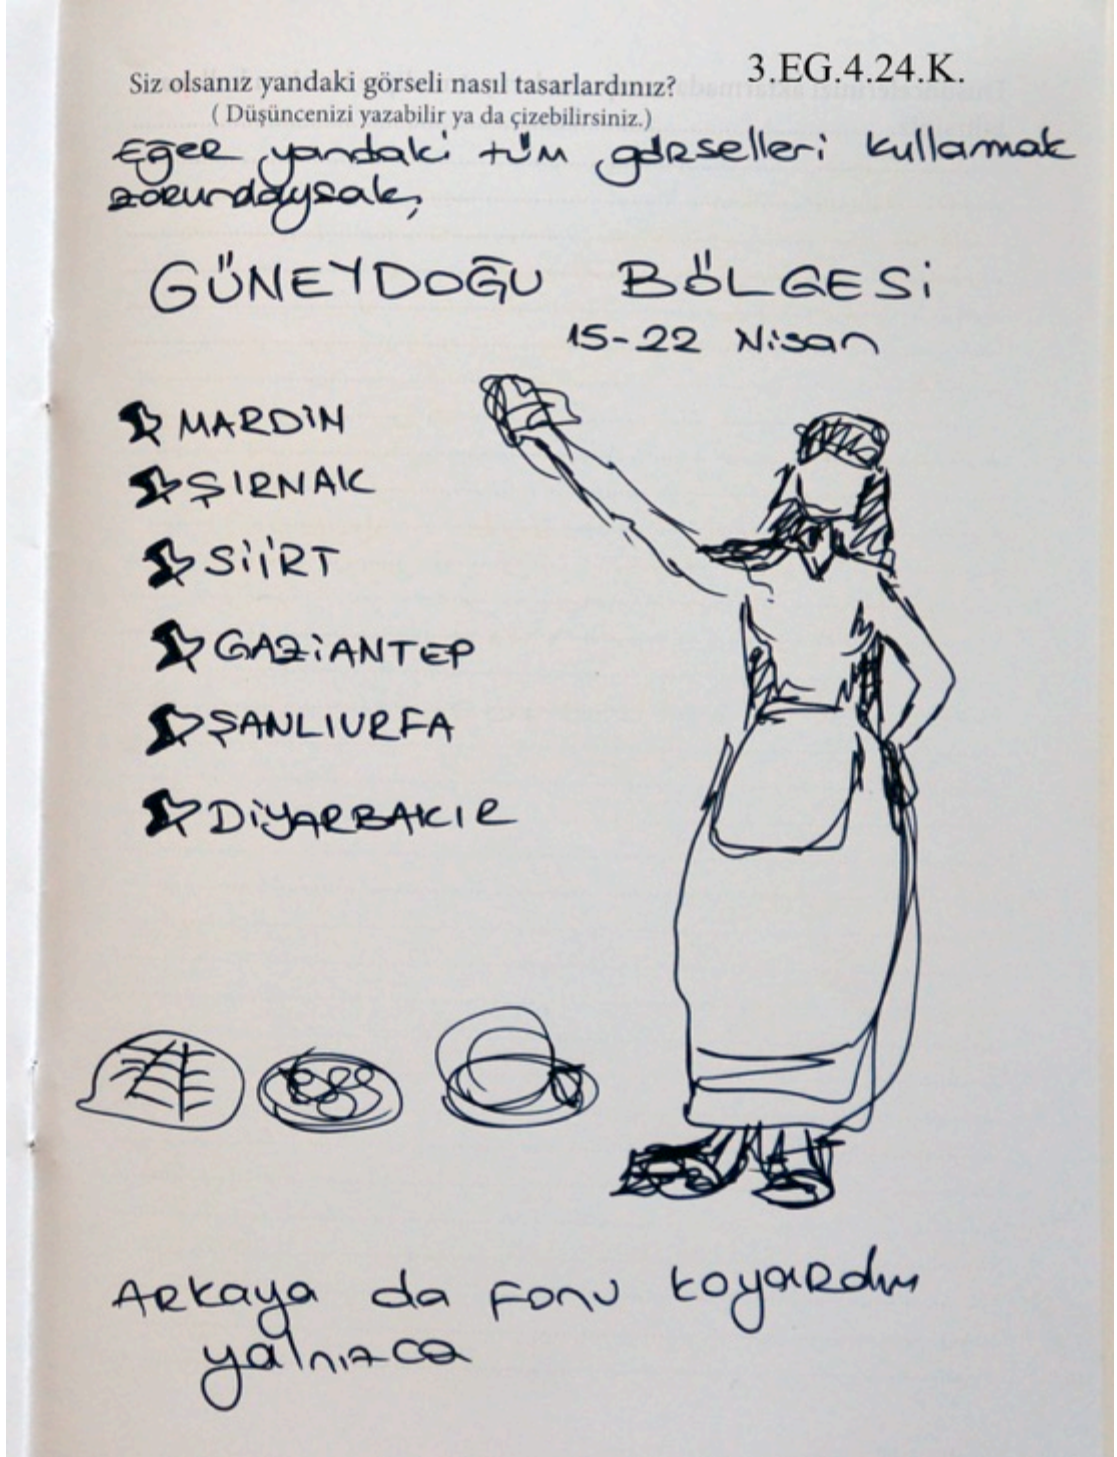 3.EG.4.24.K.
Siz olsanız yandaki görseli nasıl tasarlardınız?
( Düşüncenizi yazabilir ya da çizebilirsiniz.)
Eğer yandaki tüm görselleri kullamak
zorundaysak,
GÜNEYDOĞU BÖLGESİ
15-22 Nisan
MARDİN
ŞIRNAK
SİİRT
GAZİANTEP
ŞANLIURFA
DİYARBAKIR
Arkaya da fonu koyardım
yalnızca